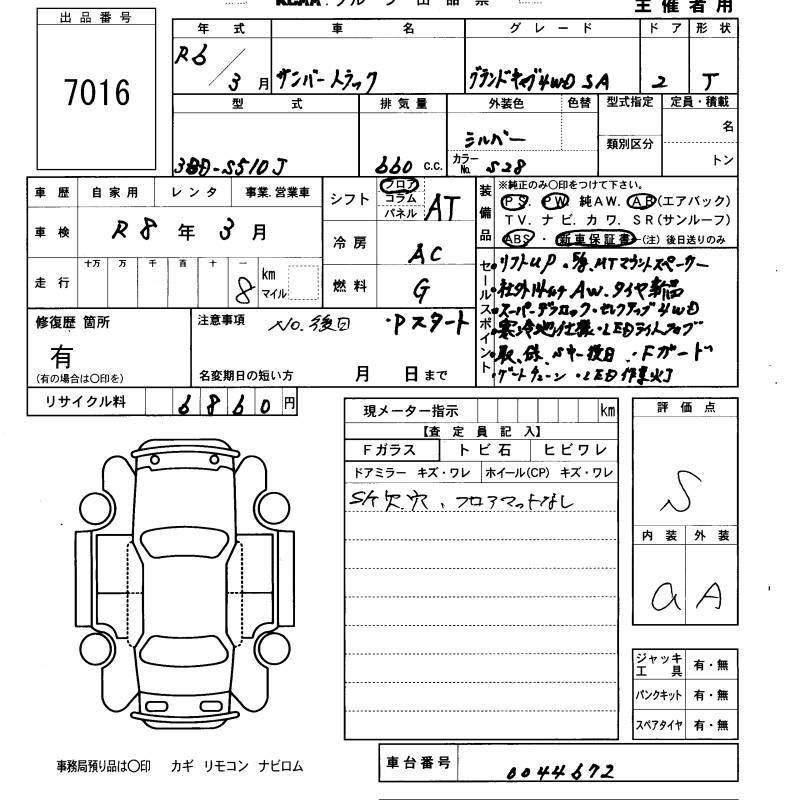 KCAA グループ 出品票
主催者用
出品番号
7016
年式 車名 グレード ドア 形状
R6/3月 サンバートラック グランドキャブ4WD SA 2 T
型式 排気量 外装色 色替 型式指定 定員・積載
類別区分
名
トン
3BD-S510J 660 C.C. シルバー
カラーNo. S28
車歴 自家用 レンタ 事業.営業車
車検 R8年3月
走行 十万 万 千 百 十 一
8 km マイル
シフト フロア コラム パネル AT
冷房 AC
燃料 G
装備品
※純正のみ〇印をつけて下さい。
PS. PW 純AW. AB(エアバック)
TV. ナビ. カワ. SR(サンルーフ)
ABS・新車保証書-(注) 後日送りのみ
セールスポイント
・リフトUP
・社外14インチAW.タイヤ新品
・スーパーデフロック・セレクティブ4WD
・寒冷地仕様・LEDライトフォグ
・取.保.Sキー後日.・Fガード
・ゲートチェーン・LED作業灯
修復歴 箇所
有
(有の場合は〇印を)
注意事項 No.後日 ・Pスタート
名変期日の短い方 月 日まで
リサイクル料 6860円
現メーター指示 km
【査定員記入】
Fガラス トビ石 ヒビワレ
ドアミラー キズ・ワレ ホイール(CP) キズ・ワレ
フロアマットなし
評価点
S
内装 外装
a A
ジャッキ工具 有・無
パンクキット 有・無
スペアタイヤ 有・無
事務局預り品は〇印 カギ リモコン ナビロム
車台番号 0044672